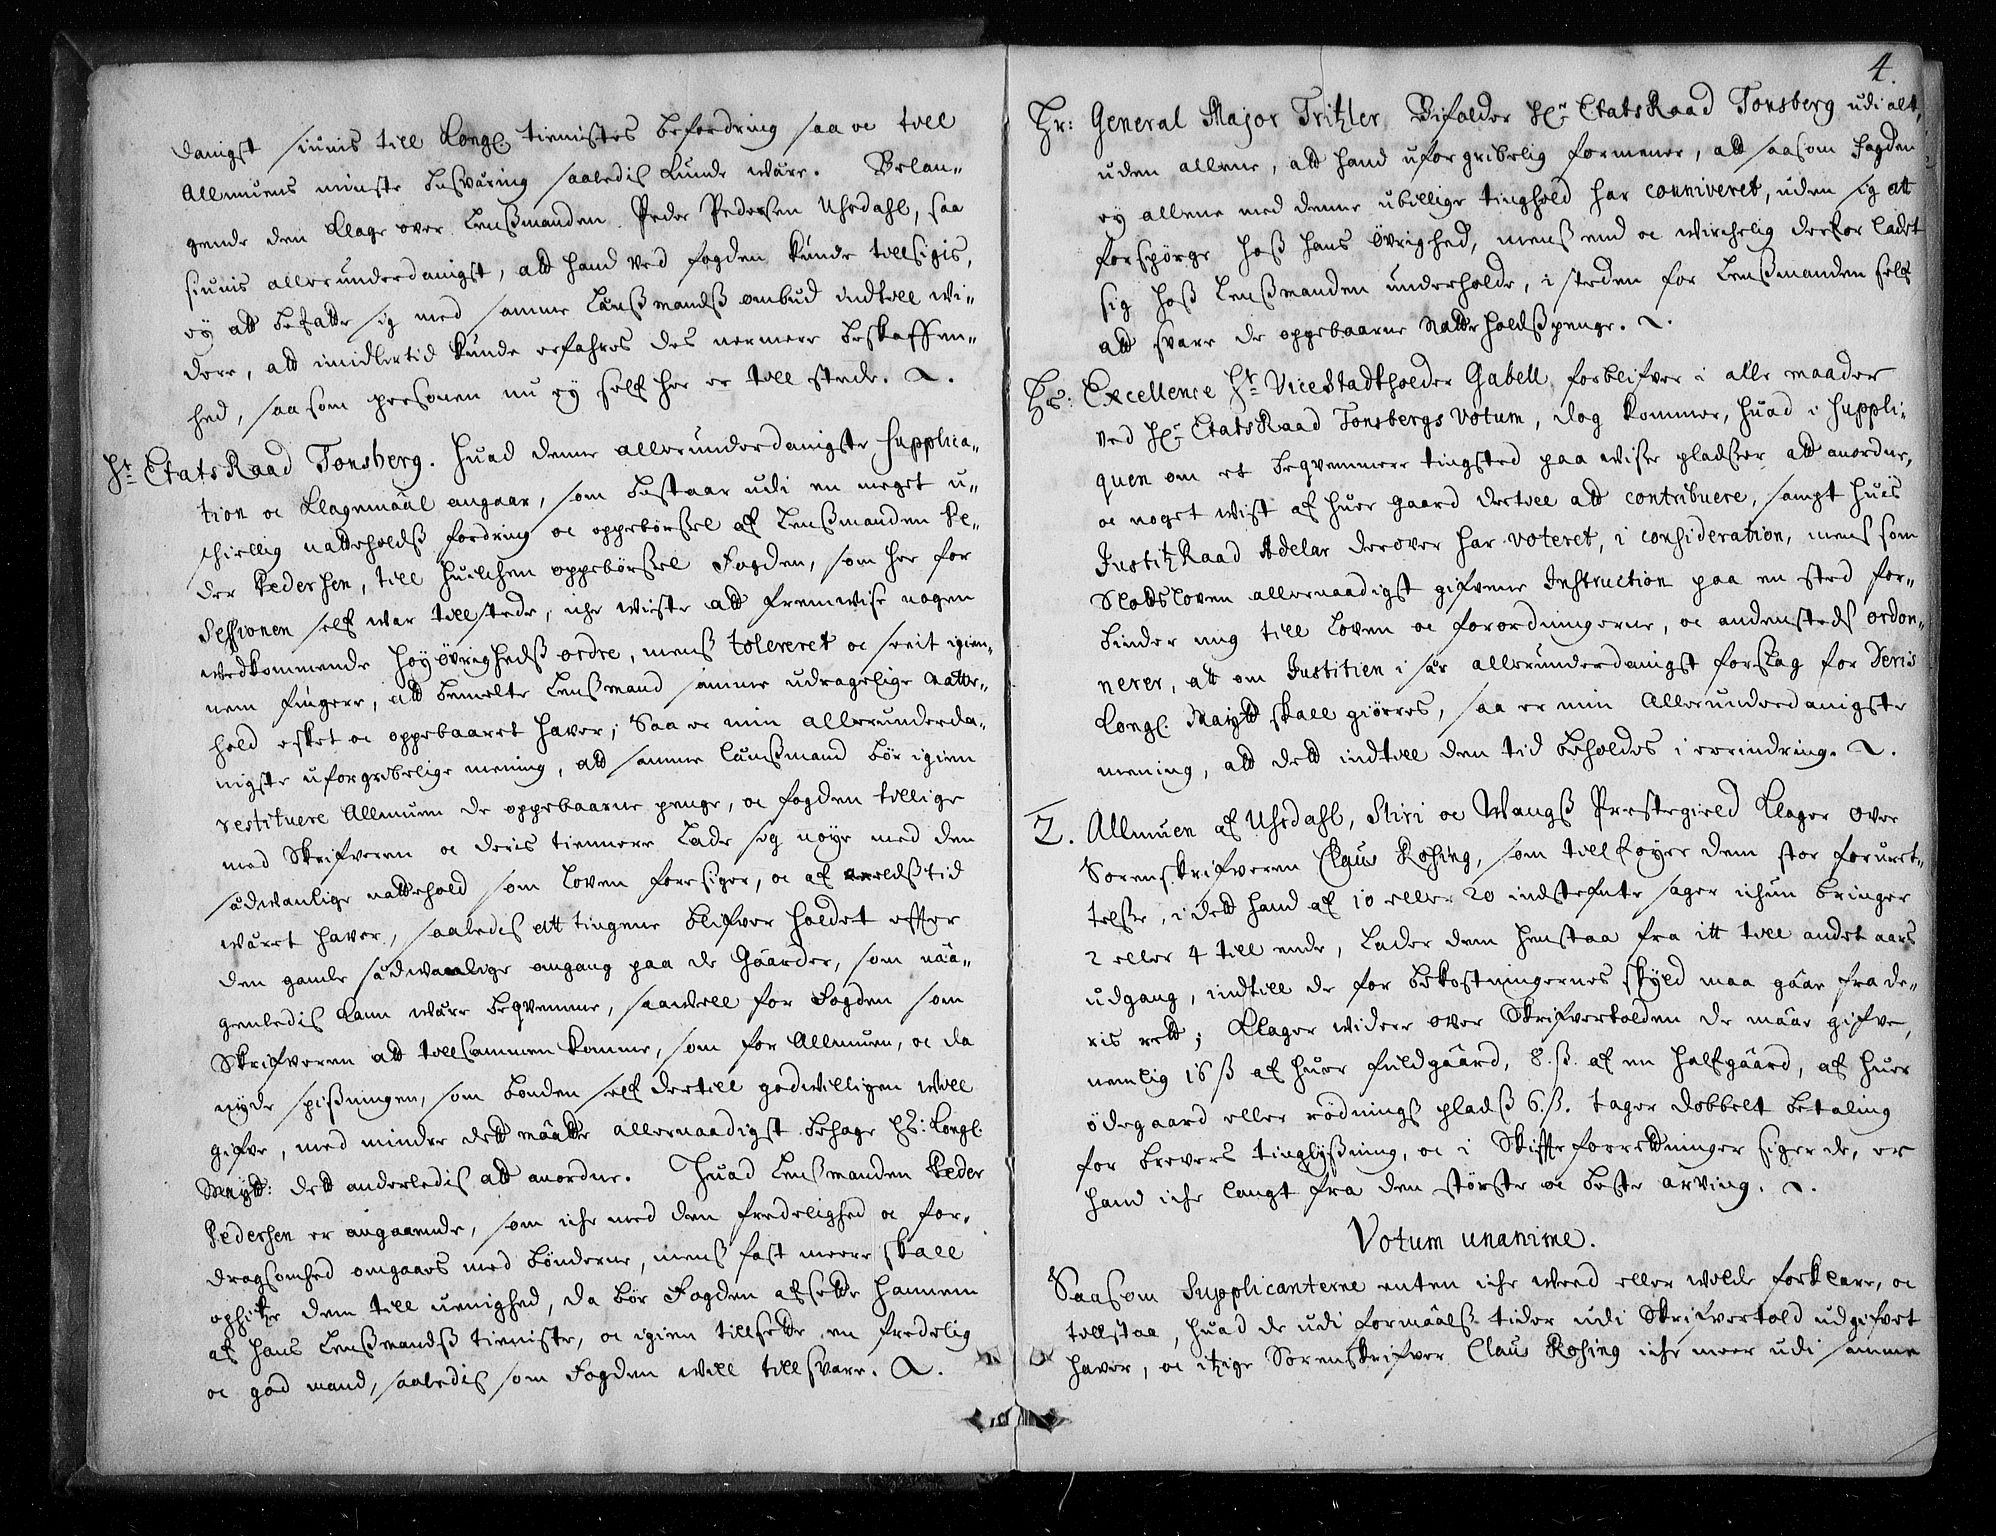 danigst siunis till Kongl: tiennistes befordring saa oc till
Allmuens minste besværing saaledis kunde wære. Belan-
gende den klage over Lensmanden Peder Pedersen Uhrdahl, saa
siunis allerunderdanigst, att hand ved fogden kunde tillsigis,
ey att befatte sig med samme Lænsmands ombud indtill wi-
dere, att imidlertid kunde erfahres des nermere beskaffen-
hed, saa som personen nu ey self her er till stede. 
Hr. Etats Raad Tonsberg. Huad denne allerunderdanigste Supplica-
tion oc klagemåål angaar, som bestaar udi en meget u-
schiellig natteholds fordring oc oppebørssel af Lensmanden Pe-
der Pedersen, till huilchen oppebørssel Fogden, som her for
Sessionen self war tillstede, iche wiste att fremwise nogen
wedkommende høyøvrigheds ordre, mens tolereret oc seeit igien-
nem fingere, att bemelte Lensmand samme udragelige natte-
hold esket oc oppebaaret haver; Saa er min allerunderda-
nigste uforgribelige mening, att samme lænsmand bør igien
restituere Allmuen de oppebaarne penge, oc fogden tillige
med Skrifveren oc deris tiennere lade sig nøye med den
sædwanlige nattehold som Loven foresiger, oc af arildstid
wæret haver, saaledis att tingene blifver holdet effter
den gamle sædwanlige omgang paa de Gaarder, som nåå-
genledis kann wære beqvemme, saawell for Fogden som
Skrifveren att tillsammen komme, som for Allmuen, oc da
nyde spisningen, som bonden self dertill godwilligen will
gifve, med mindre dett måatte allernaadigst behage Hs: Kongl:
Mayt: dett anderledis att anordne. Huad Lensmanden Peder
Pedersen er angaaende, som iche med den fredelighed oc for-
dragsomhed omgaaes med bønderne, mens fast meere skall
ophitze dem till uenighed, da bør Fogden afsette hannem
af hans Lensmands tienniste, oc igien tillsette en fredelig
oc god mand, saaledis som Fogden will tillsvare. 
4.
Hr: General Major Tritzler, Bifalder Hr. Etats Raad Tonsberg udi alt,
uden allene, att hand uforgribelig formener, att saasom Fogden
ey allene med denne ubillige tinghold har conniveret, uden sig att
forspørge hoss hans øvrighed, mens end oc wirchelig derfor ladet
sig hoss Lensmanden underholde, i steden for Lensmanden self
att svare de oppebaarne Natteholdspenge. 
Hs: Excellence Hr. Vice Stadtholder Gabell, forblifver i alle maader
ved Hr. Etats Raad Tonsbergs Votum, dog kommer, huad i Suppli-
quen om et beqvemmere tingsted paa wisse pladser att anordne,
oc noget wist af huer gaard dertill att contribuere, sampt huis
Justitz Raad Adelar derover har voteret, i consideration, mens som
Slotsloven allernaadigst gifvene Instruction paa en sted for-
binder mig till Loven oc forordningerne, oc andensteds ordon-
nerer, att om Justitien i sær allerunderdanigst forslag for Deris
Kongl: Maytt skall giøres, saa er min Allerunderdanigste
mening, att dett indtill den tid beholdes i erindring. 
2. Allmuen af Uhrdahl, Stiri oc Wangs Prestegield klager over
Sorenskrifveren Claus Rosing, som tillføyer dem stor foruret-
telse, i dett hand af 10 eller 20 indstefnte sager ichun bringer
2 eller 4 till ende, lader dem henstaa fra itt till andet aars
udgang, indtill de for bekostningernes skyld maa gåae fra de-
ris rett; klager widere over Skrifvertolden de måae gifve,
nemlig 16 ß af huer fuldgåard, 8. ß. af en halfgåard, af huer
ødegaard eller rødnings plads 6. ß. tager dobbelt betaling
for breves tinglysning, oc i Skifteforretninger siger de, er
hand iche langt fra den største oc beste arving. 
Votum unanime.
Saasom Supplicanterne enten iche weed eller wilde forklare, oc
tillstaa, huad de udi formåals tider udi Skrifvertold udgifvet
haver, oc itzige Sorenskrifver Claus Rosing iche meer udi samme